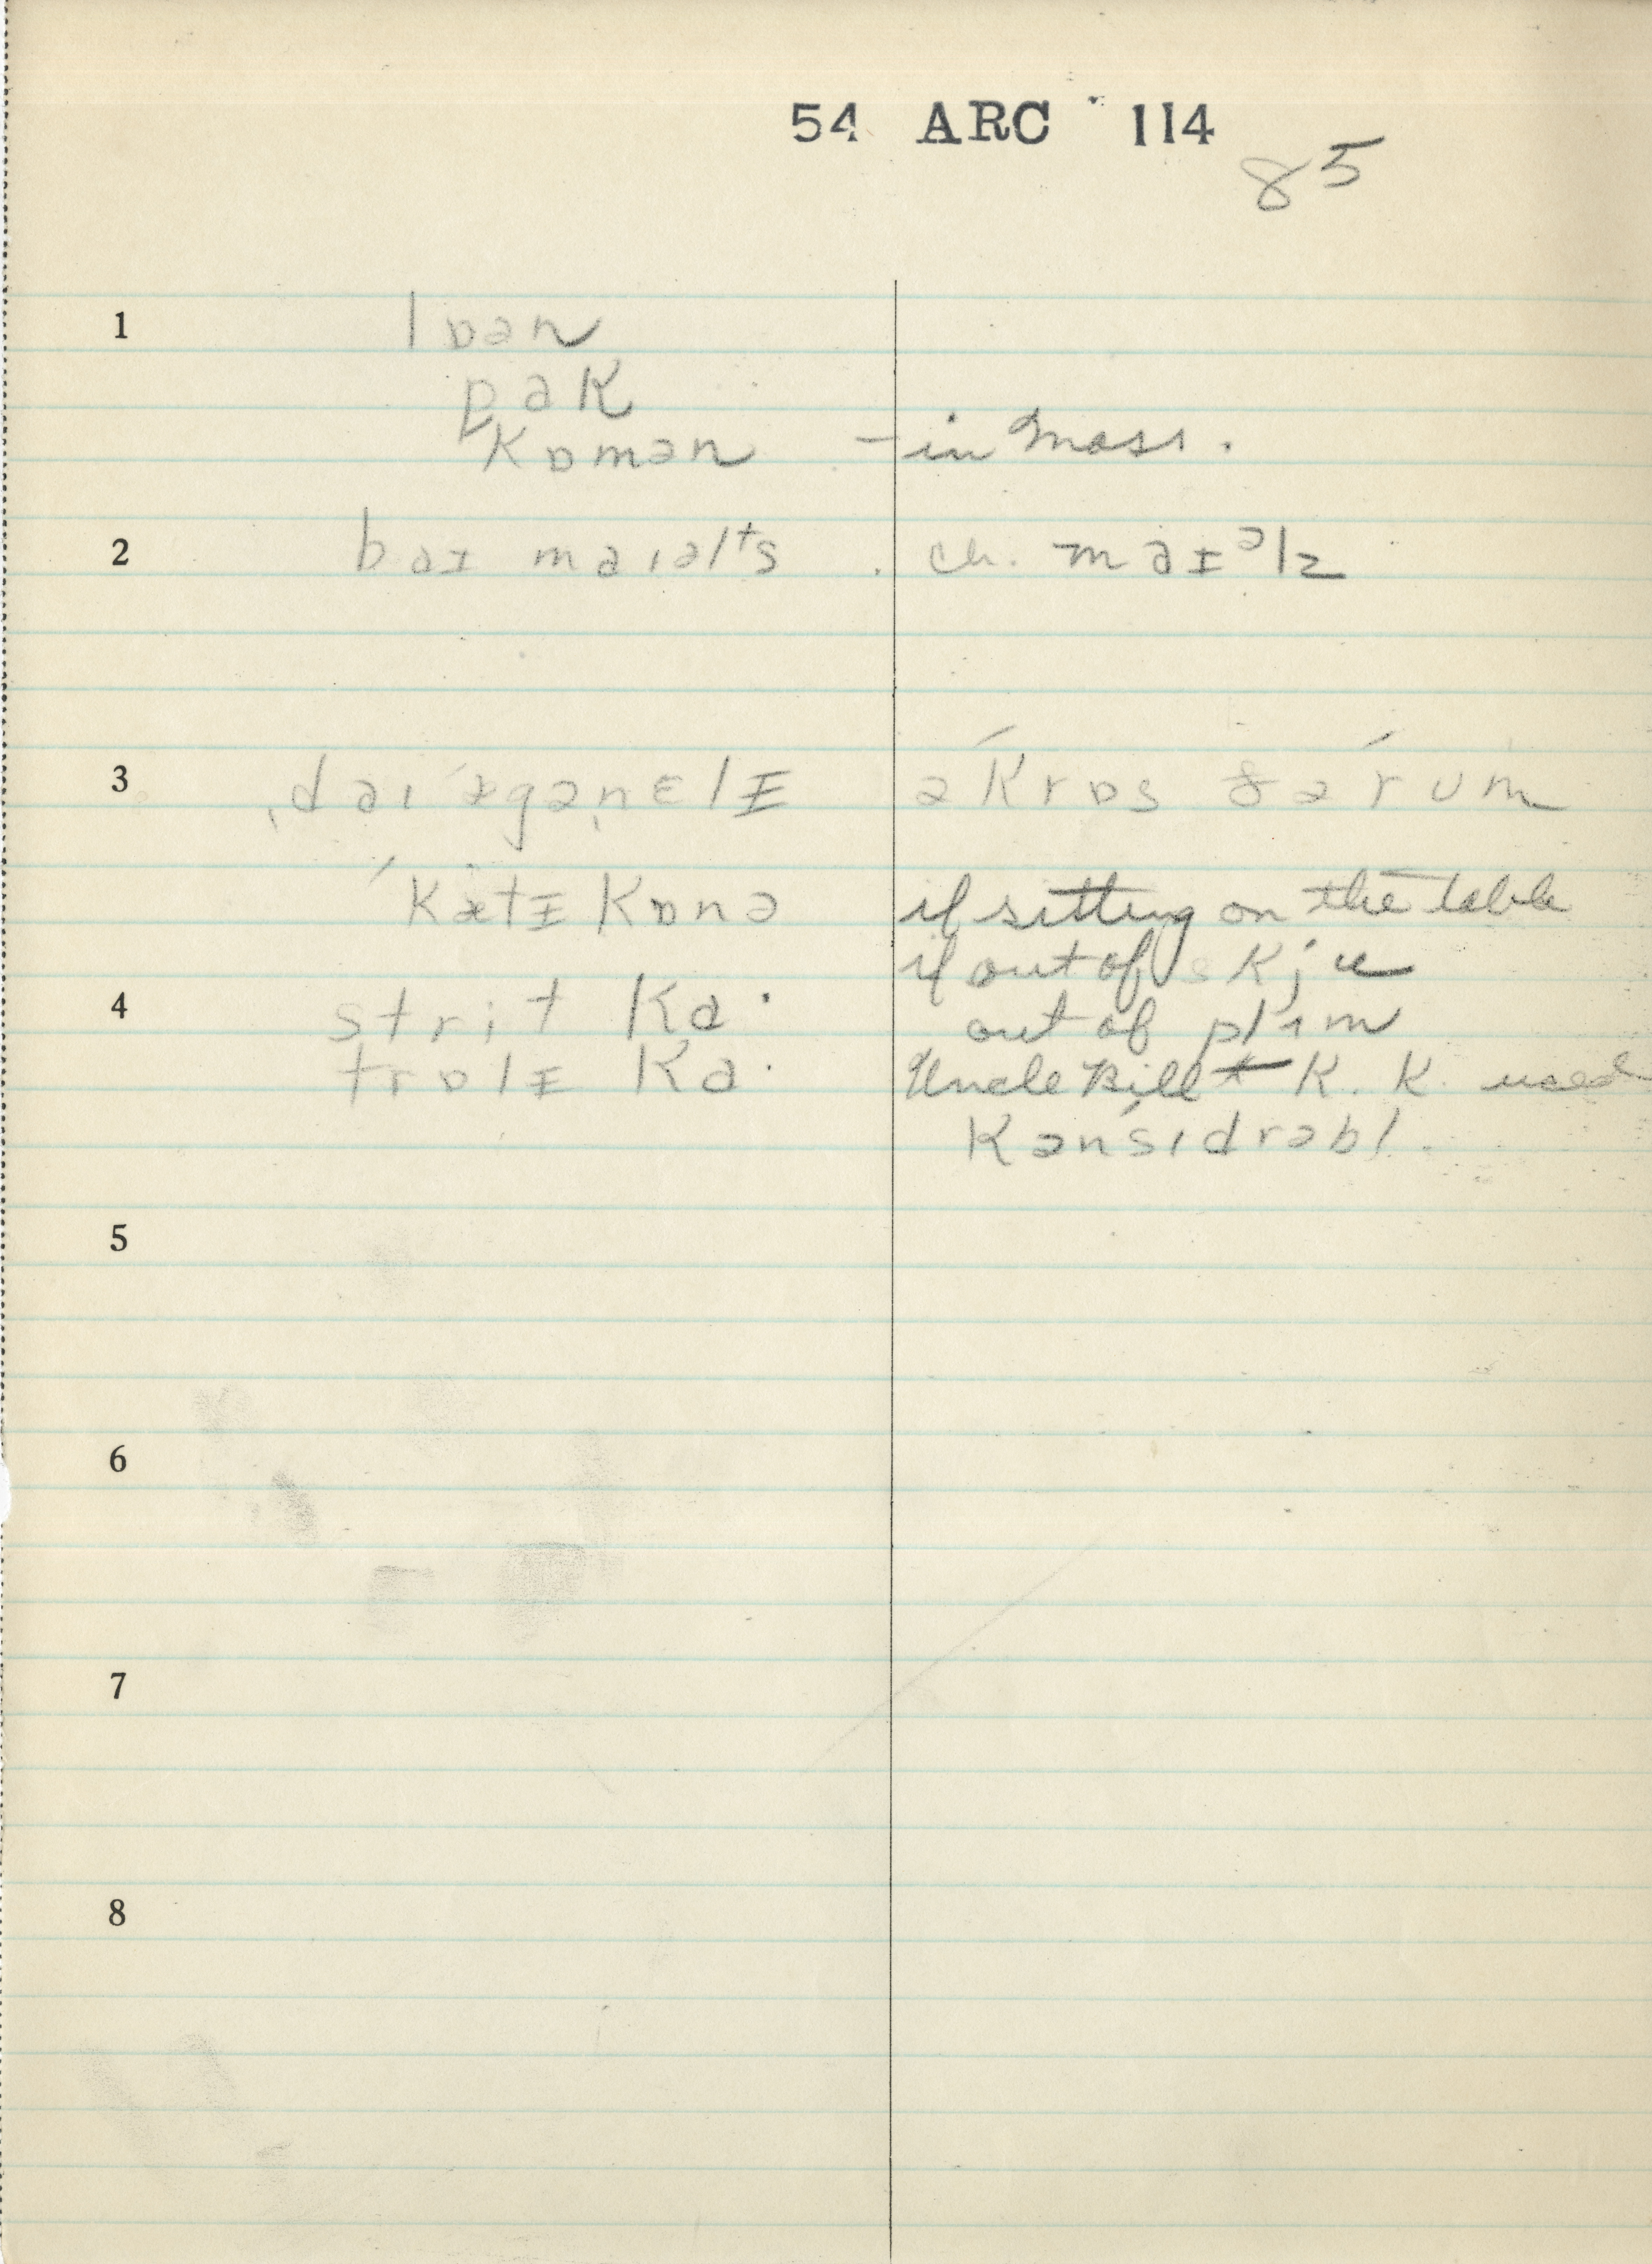 54 ARC 114
85
1 lɒən
pak
kɒmən – in Mass.
2 baɪ maɪəlᵗs . ch. maɪᵊlz
3 ˌdaɪˈægəˌnɛlɪ əˈkrɒs ðəˈrum
ˈkætɪkɒnə if sitting on the table
if out of skju
4 strit ka· out of plɪm
trɒlɪ ka· Uncle Bill + K. K. used
kənˈsɪdrəbl.
5
6
7
8